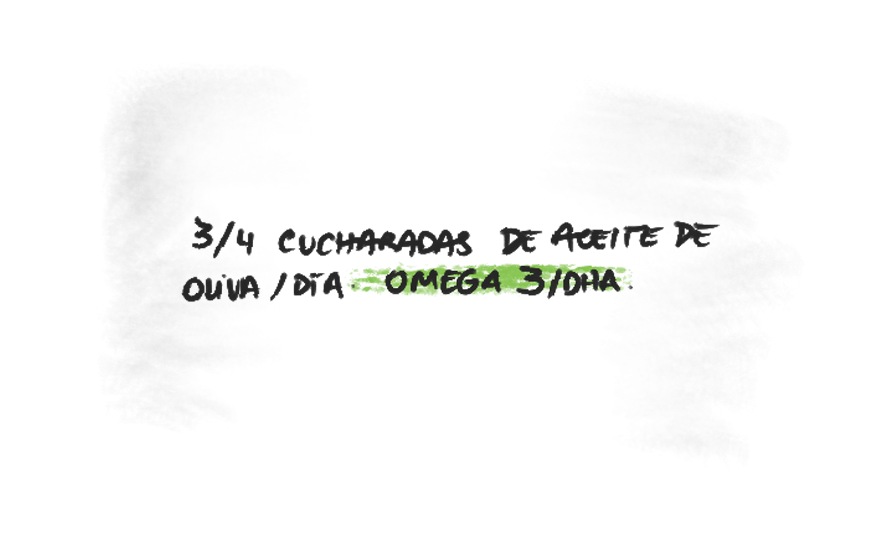 3/4 CUCHARADAS DE ACEITE DE
OLIVA / DÍA. OMEGA 3/DHA.